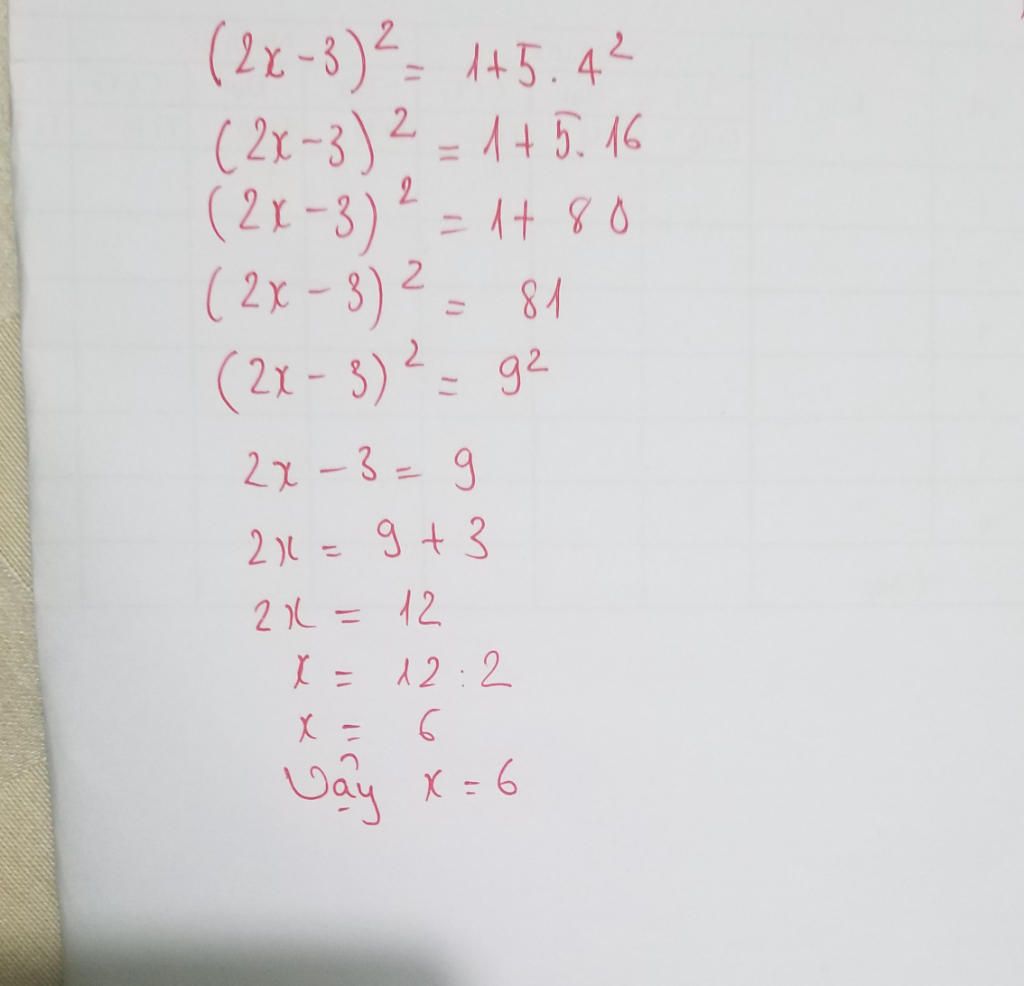 (2x-3)² = 1+5.4²
(2x-3)² = 1+5.16
(2x-3)² = 1+80
(2x-3)² = 81
(2x-3)² = 9²
2x-3 = 9
2x = 9+3
2x = 12
x = 12:2
x = 6
Vậy x = 6